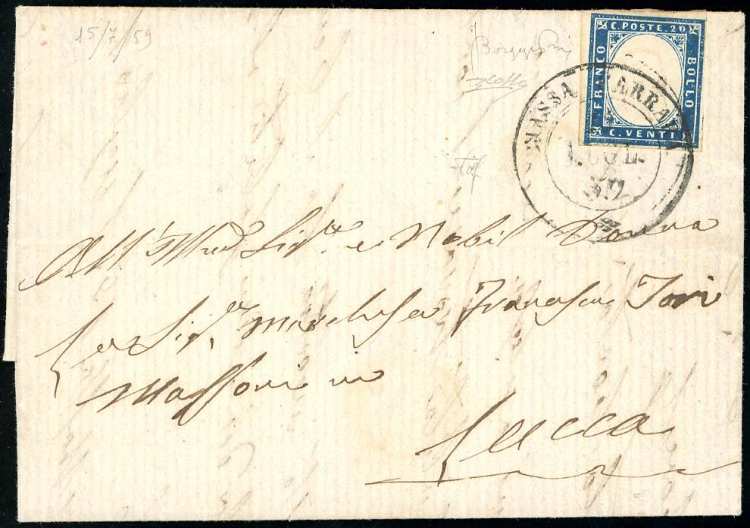 15/7/59
C. POSTE. 20
FRANCO
BOLLO
C. VENTI
MASSA CARRARA
LUGL.
59
All' Sig.ra e Nobil Donna
La Sig.ra Marchesa Francesca
Massoni in
Lucca